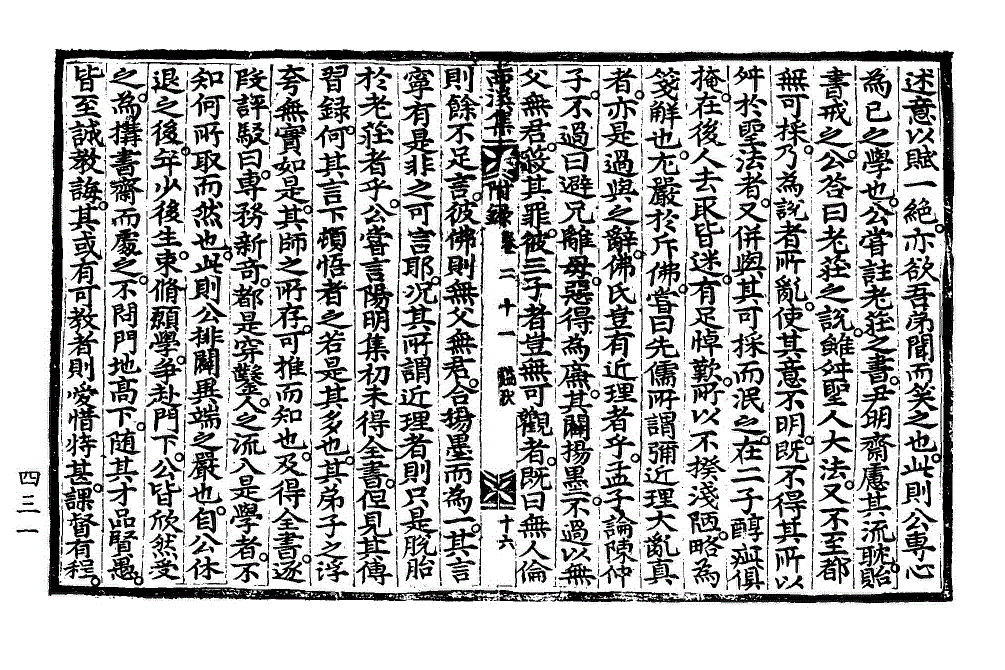 述意以賦一絶亦欲吾弟聞而笑之也此則公專心
為己之學也公嘗註老莊之書尹明齋慮其流耽貽
書戒之公答曰老莊之說雖舛聖人大法又不至都
無可採乃為說者所亂使其意不明既不得其所以
舛於聖法者又併與其可採而泯之在二子醇疵俱
掩在後人去取皆迷有足悼歎所以不揆淺陋略為
箋解也尤嚴於斥佛嘗曰先儒所謂彌近理大亂真
者亦是過與之辭佛氏豈有近理者乎孟子論陳仲
子不過曰避兄離母惡得為廉其闢楊墨不過以無
父無君蔽其罪彼三子者豈無可觀者既曰無人倫
西溪集 附錄 卷二十一 諡狀 十六
則餘不足言彼佛則無父無君合楊墨而為一其言
寧有是非之可言耶况其所謂近理者則只是脫胎
於老莊者乎公嘗言陽明集初未得全書但見其傳
習録何其言下頓悟者之若是其多也其弟子之浮
夸無實如是其師之所存可推而知也及得全書逐
段評駁曰專務新奇都是穿鑿人之流入是學者不
知何所取而然也此則公排闢異端之嚴也自公休
退之後年少後生束脩願學爭赴門下公皆欣然受
之為搆書齋而處之不問門地高下隨其才品賢愚
皆至誠教誨其或有可教者則愛惜特甚課督有程
四三一